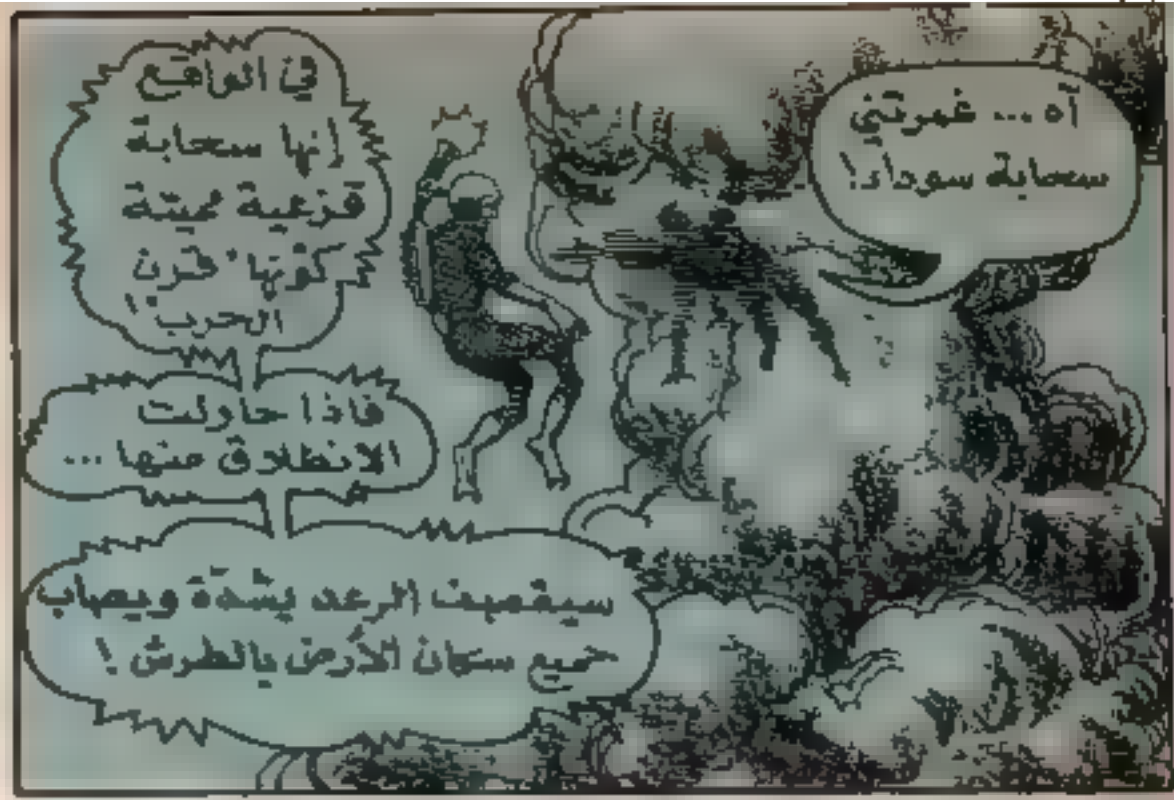 آه ... غمرتني
سحابة سوداء!
في الواقع
إنها سحابة
قزعية مميتة
كونها "قرن
الحرب"!
فاذا حاولت
الانطلاق منها ...
سيقصف الرعد بشدة ويصاب
جميع سكان الأرض بالطرش!